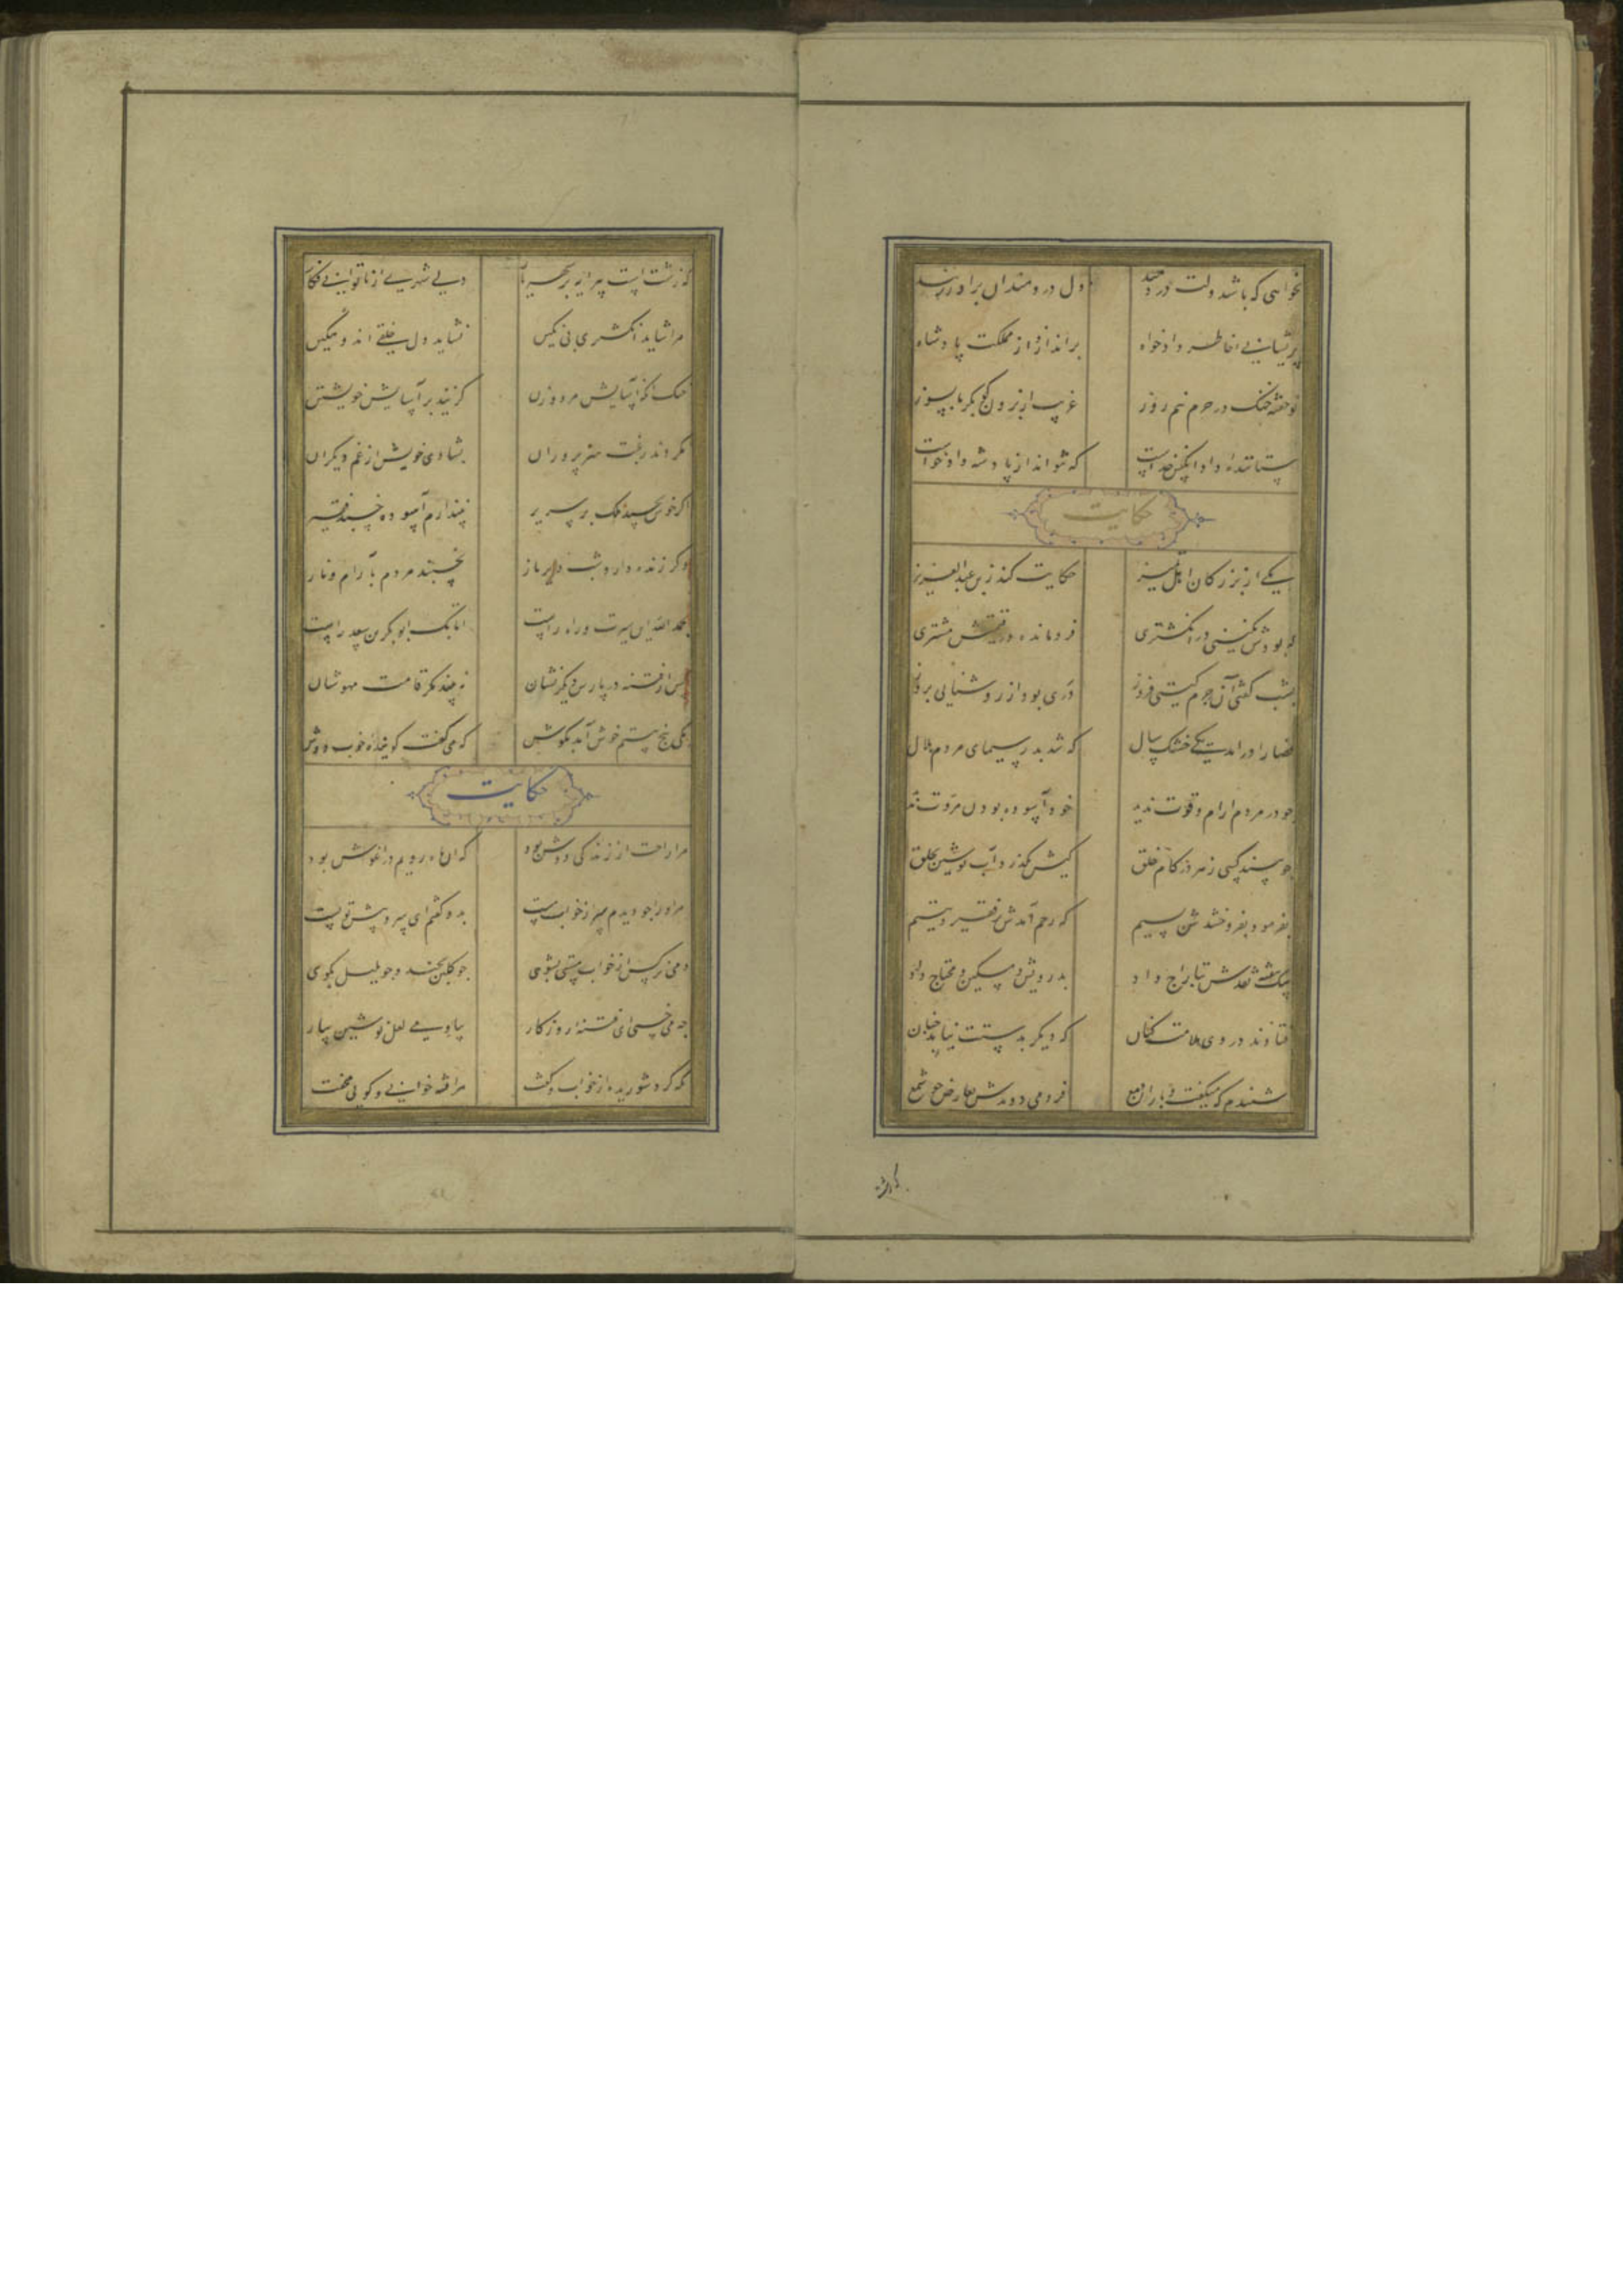 نخواهی که باشد دلت دردمند دل دردمندان برآور ز بند
پریشانی خاطر دادخواه براندازد از مملکت پادشاه
تو خفته خنک در حرم نیم روز غریب از برون گو بگرما بسوز
ستاننده داد آنکس خداست که نتواند از پادشه داد خواست
حکایت
یکی از بزرگان اهل تمیز حکایت کند ز ابن عبدالعزیز
که بودش نگینی در انگشتری فرومانده در قیمتش مشتری
بشب گفتی آن جرم گیتی فروز دری بود از روشنایی چو روز
قضا را درآمد یکی خشک سال که شد بدر سیمای مردم هلال
چو در مردم آرام و قوت ندید خود آسوده بودن مروت ندید
چو بیند کسی زهر در کام خلق کیش بگذرد آب نوشین بحلق
بفرمود بفروختندش بسیم که رحم آمدش بر فقیر و یتیم
بیک هفته نقدش بتاراج داد بدرویش و مسکین و محتاج داد
فتادند در وی ملامت کنان که دیگر بدستت نیاید چنان
شنیدم که میگفت و باران دمع فرو می دویدش بعارض چو شمع
که زشتست پیرایه بر شهریار دل شهری از ناتوانی فکار
مرا شاید انگشتری بی نگین نشاید دل خلقی اندوهگین
خنک آنکه آسایش مرد و زن گزیند بر آسایش خویشتن
نکردند رغبت هنرپروران بشادی خویش از غم دیگران
اگر خوش بخسبد ملک بر سریر نپندارم آسوده خسبد فقیر
وگر زنده دارد شب دیر باز بخسبند مردم بآرام و ناز
بحمد الله این سیرت و راه راست اتابک ابوبکر بن سعد راست
کس از فتنه در پارس دیگر نشان نبیند مگر قامت مهوشان
یکی پنج بیتم خوش آمد بگوش که می گفت گوینده خوب دوش
حکایت
مرا راحت از زندگی دوش بود که آن ماه رویم در آغوش بود
مر او را چو دیدم سر از خواب مست بدو گفتم ای سرو پیش تو پست
دمی نرگس از خواب مستی بشوی چو گلبن بخند و چو بلبل بگوی
چه می خسبی ای فتنه روزگار بیا و می لعل نوشین بیار
نگه کرد شوریده از خواب و گفت مرا فتنه خوانی و گویی مخفت